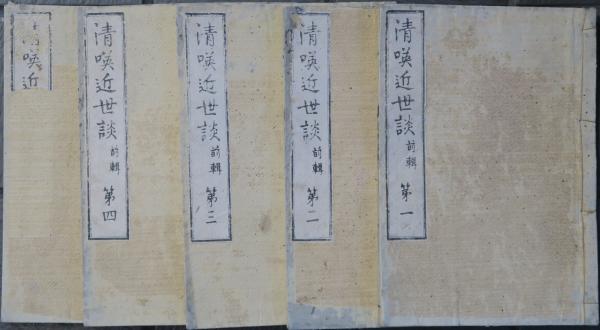 清暎近世談 前輯 第一
清暎近世談 前輯 第二
清暎近世談 前輯 第三
清暎近世談 前輯 第四
清暎近